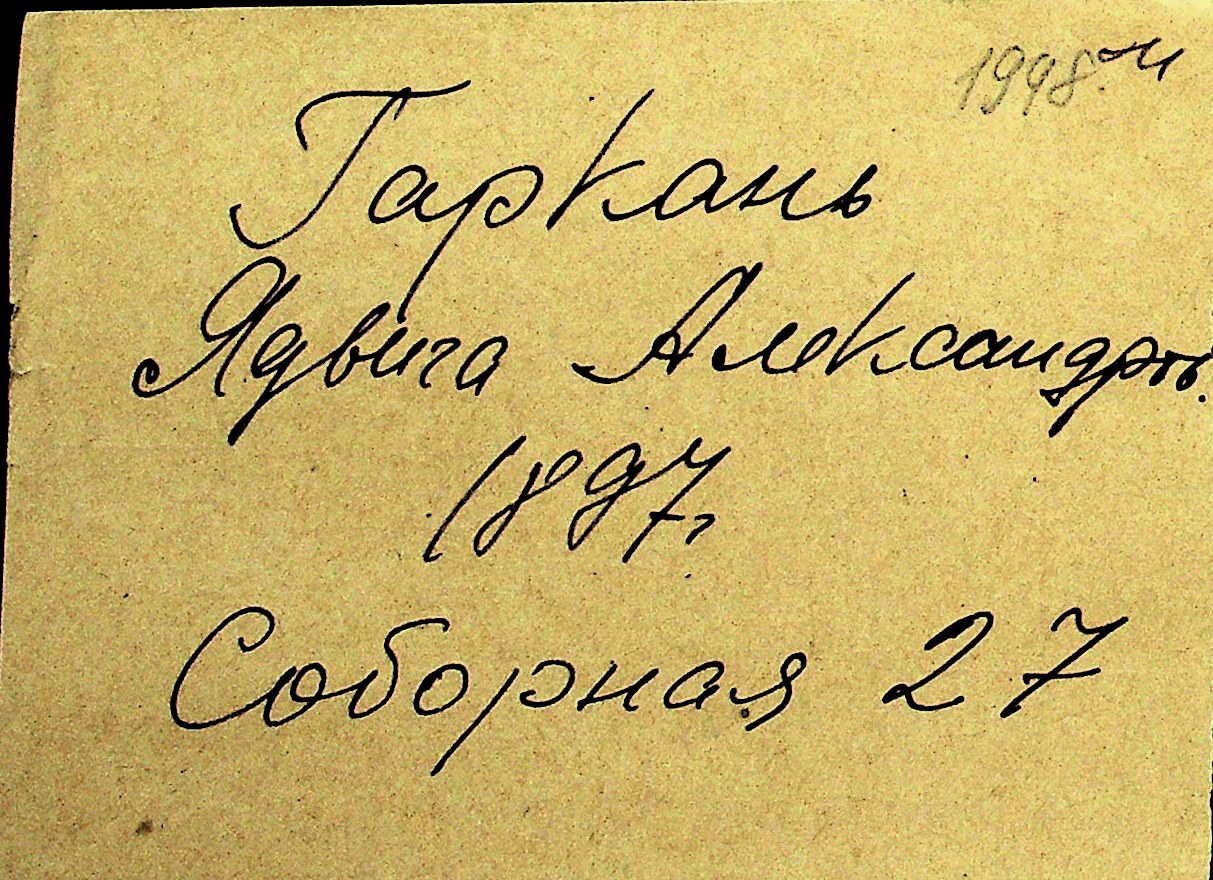 Гаркань
Ядвига Александр.
1897г
Соборная 27